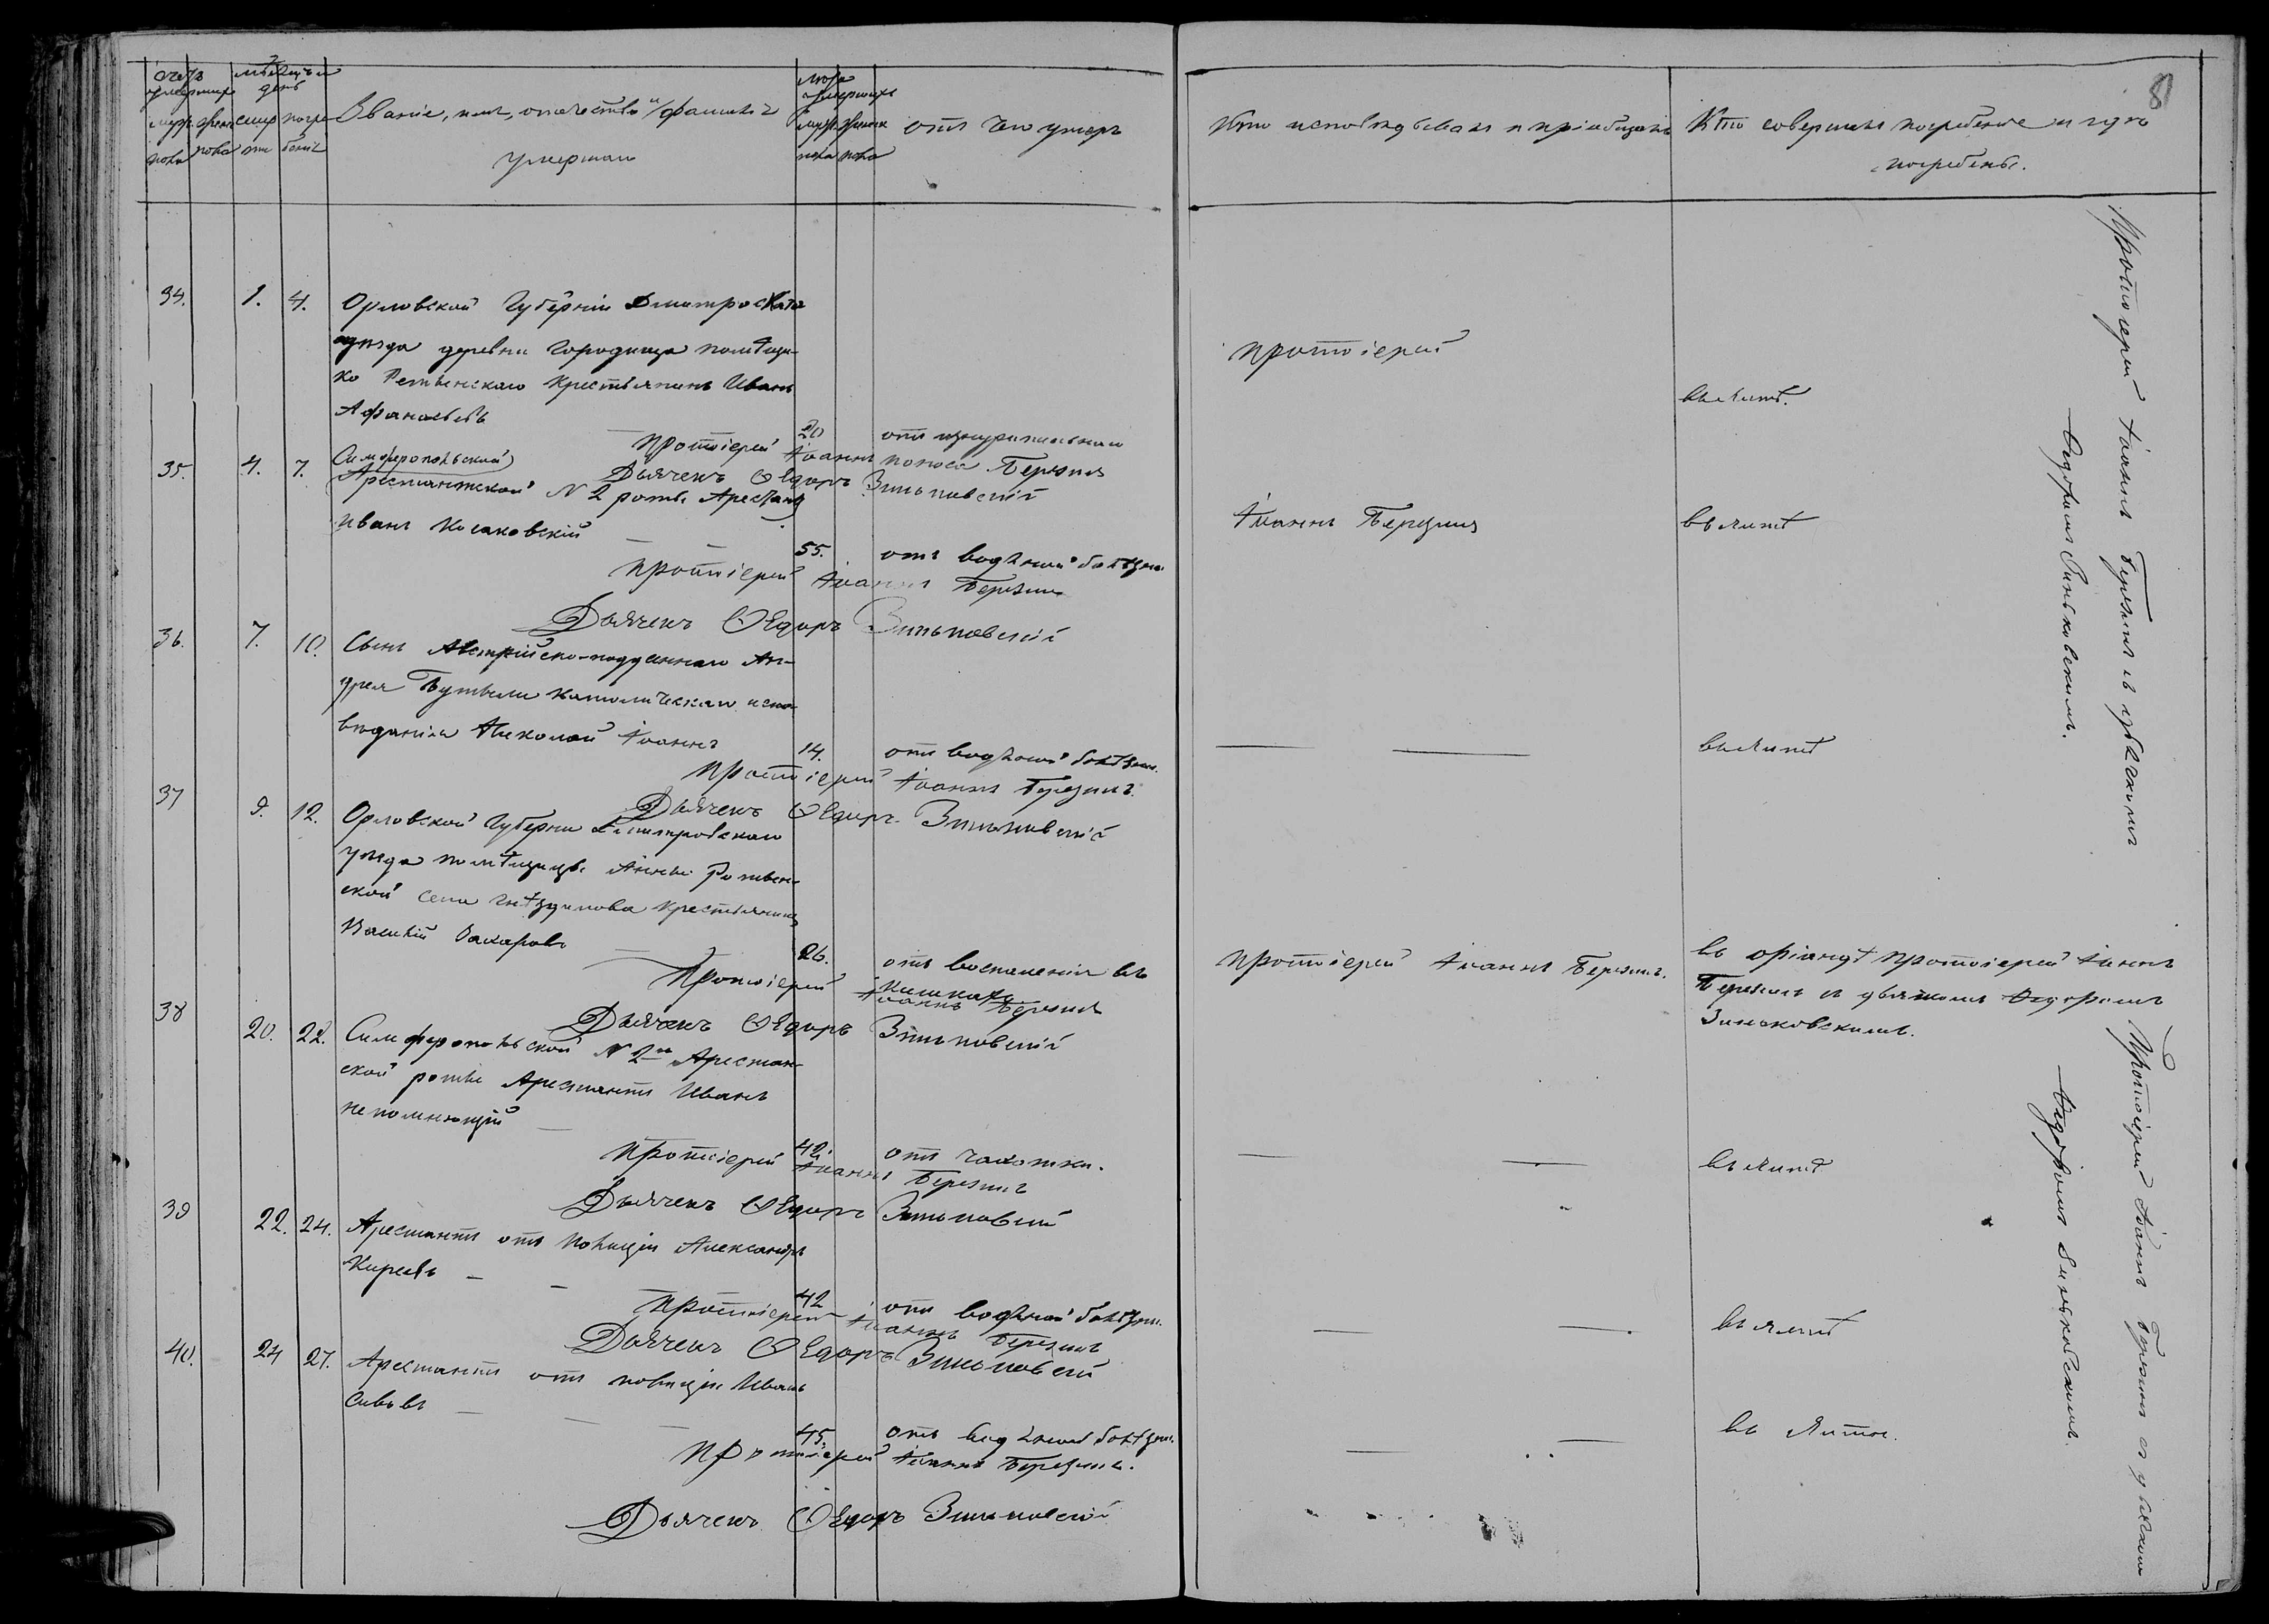 счетъ умершихъ
мѣсяцъ и день
муж. пола
женс. пола
смерти
погребенія
Званіе, имя, отечество и фамилія
умершаго
лѣта умершихъ
муж. пола
женск. пола
отъ чего умеръ
Кто исповѣдывалъ и пріобщалъ
Кто совершалъ погребеніе и гдѣ
погребены.
81
34. 1. 4. Орловской Губерніи Дмитровскаго
уѣзда деревни Городища помѣщи-
ка крестьянинъ Иванъ
Афанасьевъ
20 отъ изнурительнаго
поноса
протоіерей
въ Ялтѣ.
Протоіерей Іоаннъ Березинъ
Дьячекъ Ѳедоръ Зиньковскій
35. 4. 7. Симферопольской
Арестантской N 2 роты Арестантъ
Иванъ Косаковскій
55. отъ водяной болѣзни
Іоаннъ Березинъ
въ Ялтѣ
Протоіерей Іоаннъ Березинъ
Дьячекъ Ѳедоръ Зиньковскій
36. 7. 10. Сынъ Австрійско-подданнаго Ан-
дрея католическаго испо-
вѣданія Николай Іоаннъ
14. отъ водяной болѣзни.
въ Ялтѣ
Протоіерей Іоаннъ Березинъ
Дьячекъ Ѳедоръ Зиньковскій
37 9. 12. Орловской Губерни Дмитровскаго
уѣзда помѣщицы Анны
ской села Гнѣздилова крестьянинъ
Василій Захаровъ
26. отъ воспаленія въ
кишкахъ
Протоіерей Іоаннъ Березинъ.
въ Оріандѣ протоіерей Іоаннъ
Березинъ съ дьячкомъ Ѳедоромъ
Зиньковскимъ.
Протоіерей Іоаннъ Березинъ
Дьячекъ Ѳедоръ Зиньковскій
38 20. 22. Симферопольской N 2й Арестан-
ской роты Арестантъ Иванъ
непомнющій
42. отъ чахотки.
въ Ялтѣ
Протоіерей Іоаннъ Березинъ
Дьячекъ Ѳедоръ Зиньковскій
39 22. 24. Арестантъ отъ полиціи Александръ
Киреевъ
42 отъ водяной болѣзни.
въ Ялтѣ
Протоіерей Іоаннъ Березинъ
Дьячекъ Ѳедоръ Зиньковскій
40. 24 27. Арестантъ отъ полиціи Иванъ
45. отъ водяной болѣзни.
въ Ялтѣ.
Протоіерей Іоаннъ Березинъ.
Дьячекъ Ѳедоръ Зиньковскій
Протоіерей Іоаннъ Березинъ съ дьячкомъ
Ѳедоромъ Зиньковскимъ.
Протоіерей Іоаннъ Березинъ съ дьячкомъ
Ѳедоромъ Зиньковскимъ.